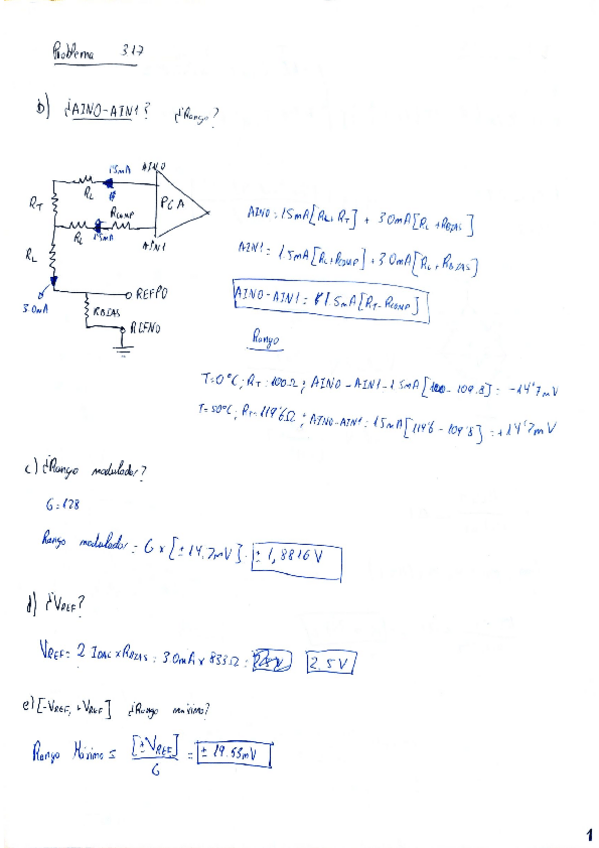 Problema 3.17
b) ¿AIN0-AIN1? ¿Rango?
1.5mA AIN0
RL
RT
PGA
RCOMP
RL 1.5mA
AIN1
RL
REFP0
3.0mA
RBIAS
REFN0
AIN0 = 1.5mA[RL+RT] + 3.0mA[RL+RBIAS]
AIN1 = 1.5mA[RL+RCOMP] + 3.0mA[RL+RBIAS]
AIN0-AIN1 = 1.5mA[RT-RCOMP]
Rango
T=0ºC; RT=100Ω; AIN0-AIN1=1.5mA[100-109.8] = -14'7mV
T=50ºC; RT=119'6Ω; AIN0-AIN1=1.5mA[119'6-109'8] = +14'7mV
c) ¿Rango modulador?
G=128
Rango modulador = G x [±14.7mV] = ±1,8816V
d) ¿VREF?
VREF = 2 IDAC x RBIAS = 3.0mA x 833Ω = 2.5V
e) [-VREF, +VREF] ¿Rango máximo?
Rango Máximo = [±VREF] / G = ±19.53mV
1